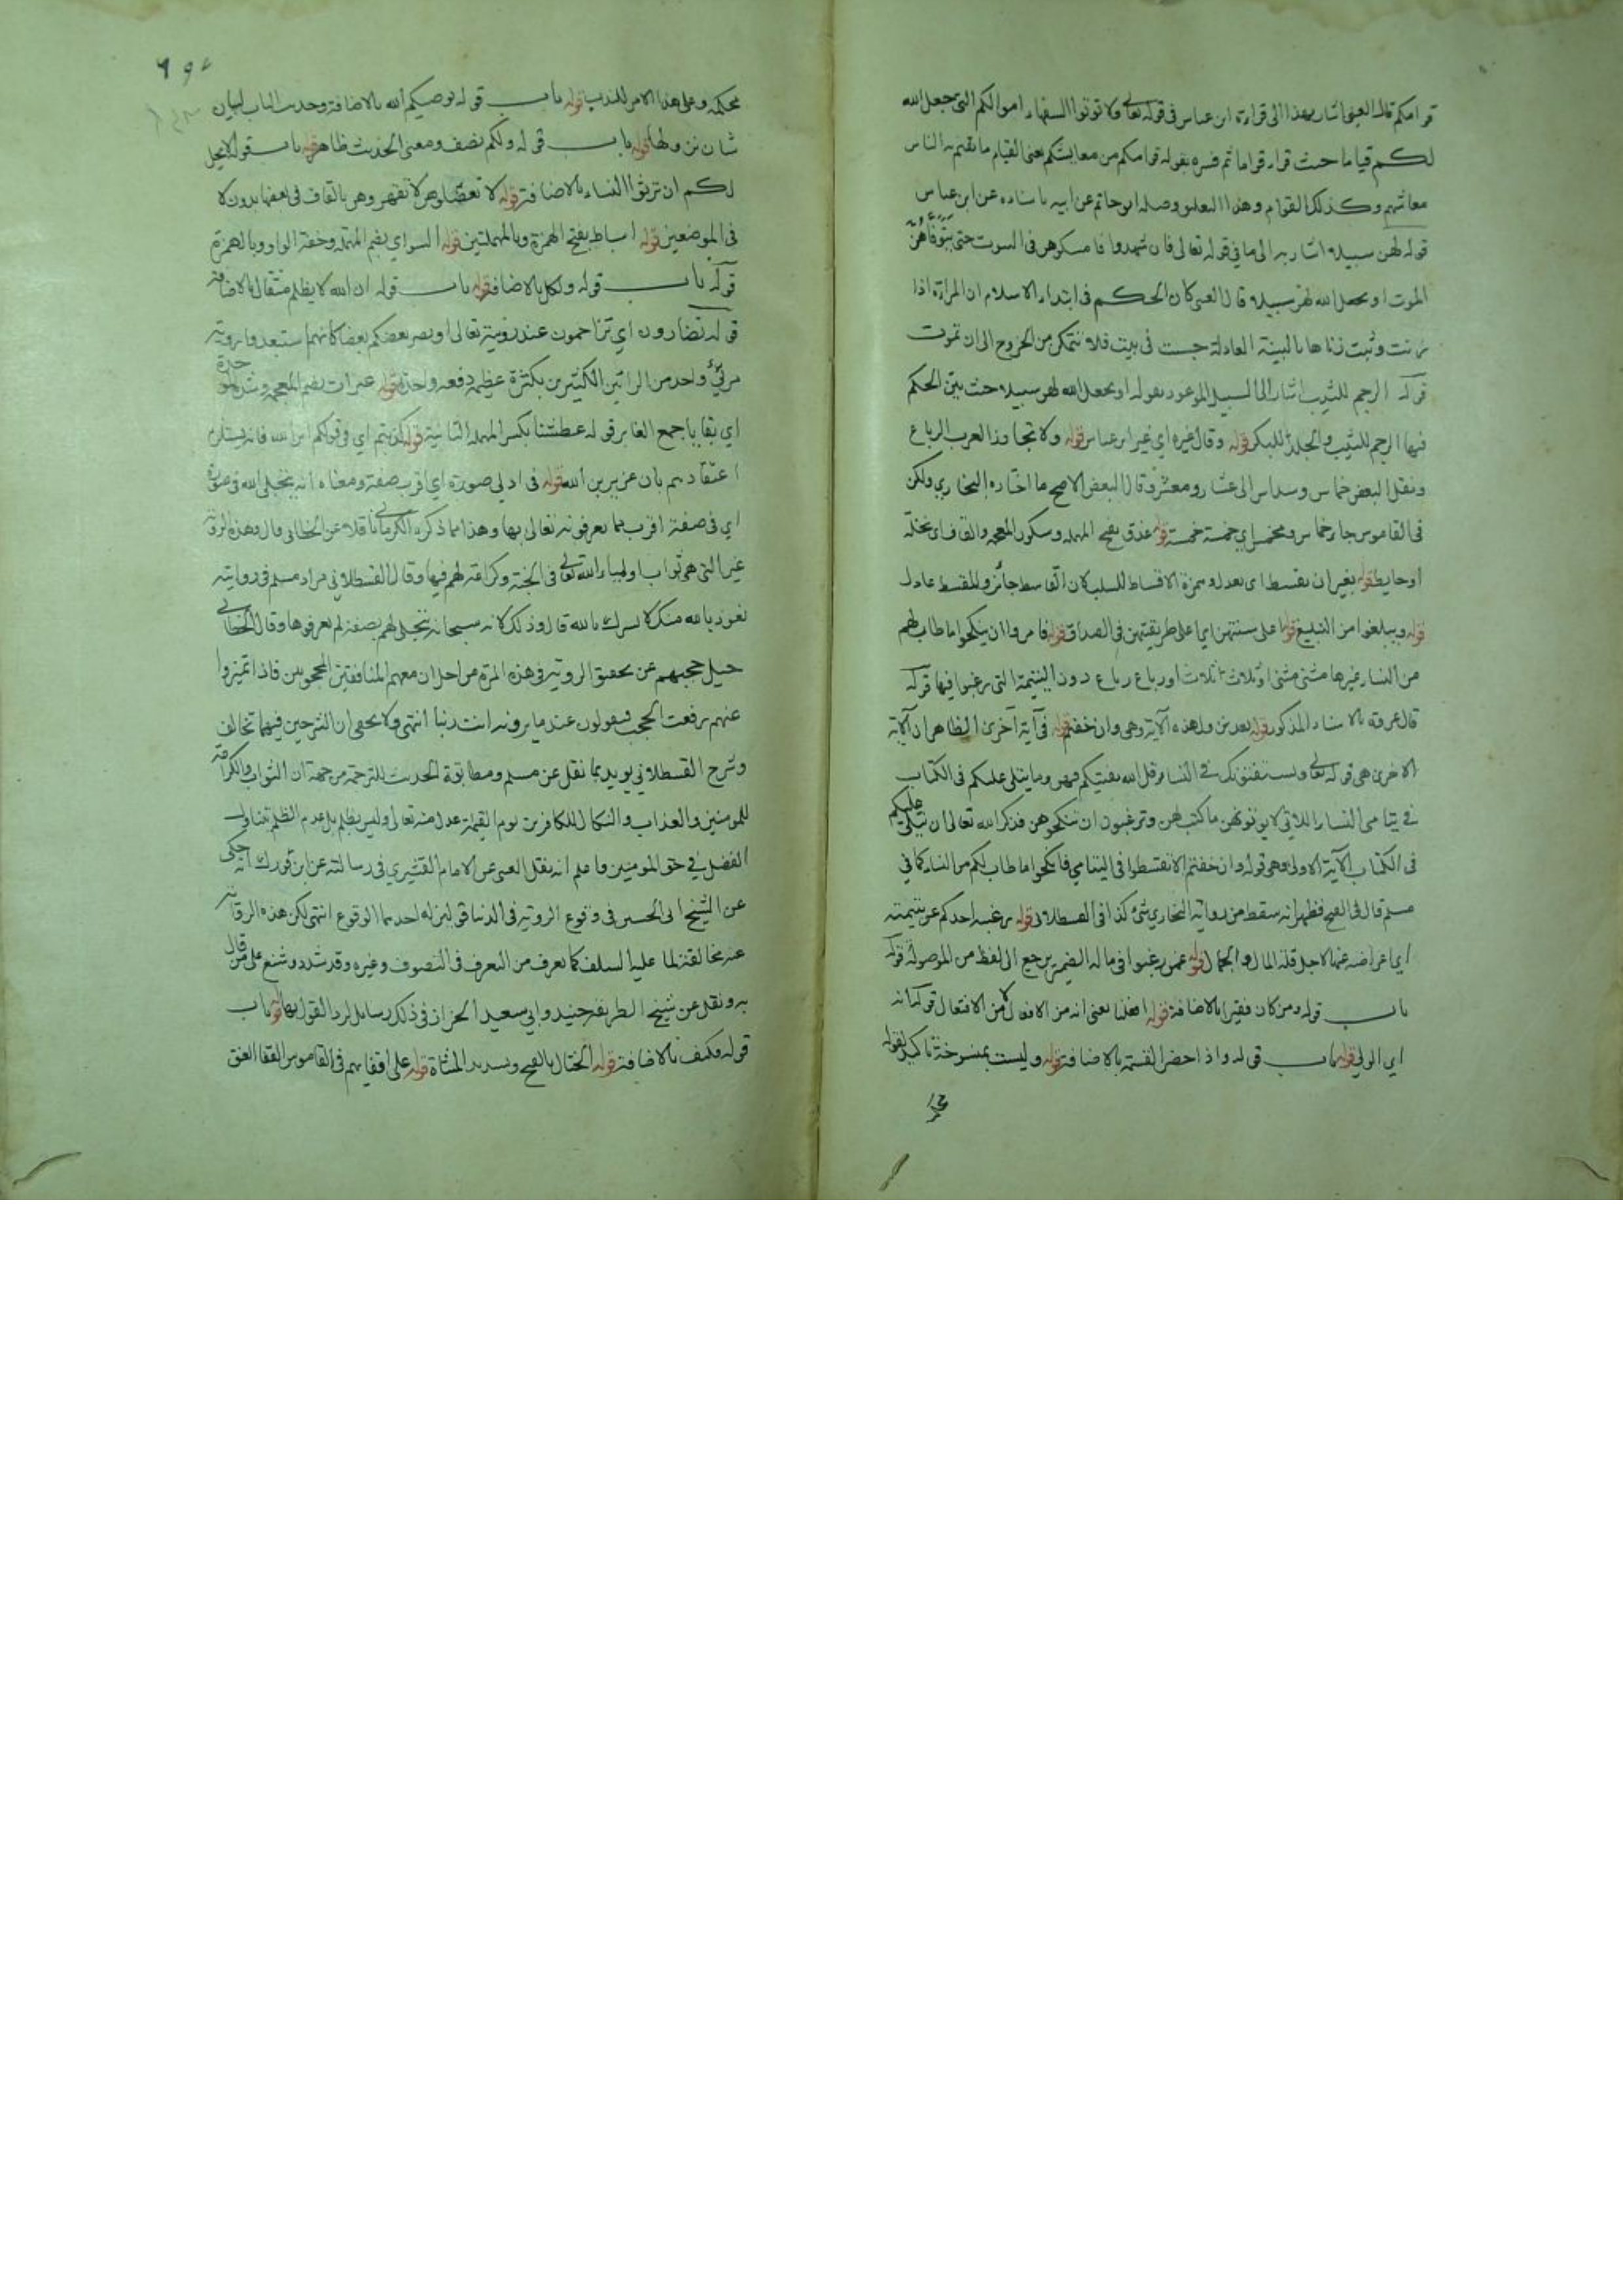 قوامكم قال العيني اشار بهذا الى قراءة ابن عباس في قوله تعالى ولا توتوا السفهاء اموالكم التي جعل الله
لكم قياما حيث قراء قواما ثم فسره بقوله قوامكم من معايشكم يعني القيام ما يقيم به الناس
معائشهم وكذلك القوام وهذا التعليق وصله ابن ابي حاتم عن ابيه باسناده عن ابن عباس
قوله لهن سبيلا اشار به الى ما في قوله تعالى فان شهدوا فامسكوهن في البيوت حتى يتوفاهن
الموت او يجعل الله لهن سبيلا قال العيني كان الحكم في ابتداء الاسلام ان المراة اذا
زنت وثبت زناها بالبينة العادلة حبست في بيت فلا تتمكن من الخروج الى ان تموت
قوله الرجم للثيب اشار الى السبيل الموعود بقوله او يجعل الله لهن سبيلا حيث بين الحكم
فيها الرجم للثيب والجلد للبكر قوله وقال غيره اي غير ابن عباس قوله ولا تجاوز العرب الرباع
ونقل البعض خماس وسداس الى عشار ومعشر وقال البعض الاصح ما اختاره البخاري ولكن
في القاموس جاء خماس ومخمس اي خمسة خمسة قوله عذق بفتح المهملة وسكون المعجمة والقاف اي نخلة
او حايط قوله بغير ان يقسط اي يعدل وهمزة الاقساط للسلب كان القاسط جائر والمقسط عادل
قوله ويبلغوا من التبليغ قوله اعلى سنتهن اي اعلى طريقتهن في الصداق قوله فامروا ان ينكحوا ما طاب لهم
من النساء غيرها مثنى مثنى او ثلاث ثلاث او رباع رباع دون اليتيمة التي رغبوا فيها قوله
قال عروة بالاسناد المذكور قوله بعد نزول هذه الآية وهي وان خفتم قوله في آية اخرى الظاهر ان الآية
الاخرى هي قوله تعالى ويستفتونك في النساء قل الله يفتيكم فيهن وما يتلى عليكم في الكتاب
في يتامى النساء اللاتي لا توتونهن ما كتب لهن وترغبون ان تنكحوهن فذكر الله تعالى ان يتلى عليكم
في الكتاب الآية الاولى وهي قوله وان خفتم الا تقسطوا في اليتامى فانكحوا ما طاب لكم من النساء كما في
مسلم قال في الفتح فظهر انه سقط من رواية البخاري شئ كذا في القسطلاني قوله رغبة احدكم عن يتيمته
اي اعراضه عنها لاجل قلة المال والجمال قوله عمن رغبوا في ماله الضمير يرجع الى لفظ من الموصولة قوله
باب قوله ومن كان فقيرا بالاضافة قوله افعلنا يعني انه من الافعال لا من الافتعال قوله انه
اي الولي قوله باب قوله واذا حضر القسمة بالاضافة قوله وليست بمنسوخة تاكيد لقوله
محكمة وعلى هذا الامر للندب قوله باب قوله يوصيكم الله بالاضافة وحديث الباب لبيان
شان نزولها قوله باب قوله ولكم نصف ومعنى الحديث ظاهر قوله باب قوله لا يحل
لكم ان ترثوا النساء بالاضافة قوله لا تعضلوهن لا تقهروهن بالقاف في بعضها بدون لا
في الموضعين قوله اسباط بفتح الهمزة وبالمهملتين قوله السواي بضم المهملة وخفة الواو وبالهمزة
قوله باب قوله ولكل بالاضافة قوله باب قوله ان الله لا يظلم مثقال بالاضافة
قوله تضارون اي تزاحمون عند رؤية تعالى او يضر بعضكم بعضا كانهم استبعدوا رؤية
مرئي واحد من الرائين الكثيرين بكثرة عظيمة دفعة واحدة قوله غبرات بضم المعجمة وشدة الموحدة
اي بقايا جمع الغابر قوله عطشنا بكسر المهملة الثانية قوله كذبتم اي في قولكم ابن الله فانه يستلزم
اعتقادهم بان عزير بن الله قوله في ادنى صورة اي اقرب صفة ومعناه انه يتجلى الله في صورة
اي في صفة اقرب مما يعرفونه تعالى بها وهذا ما ذكره الكرماني ناقلا عن الخطابي قال وهذه الرؤية
غير التي هي ثواب اولياء الله تعالى في الجنة وكرامة لهم فيها وقال القسطلاني زاد مسلم في روايته
نعوذ بالله منك لا نشرك بالله قال وذلك لانه سبحانه يتجلى لهم بصفة لم يعرفوها وقال الخطابي
قيل حجبهم عن تحقيق الروية في هذه المرة من اجل ان معهم المنافقين المحجوبين فاذا تميزوا
عنهم رفعت الحجب فيقولون عند ما يرونه انت ربنا انتهى ولا يخفى ان الشرحين فيهما تخالف
وشرح القسطلاني يويد بما نقل عن مسلم ومطابقة الحديث للترجمة من جهة ان الثواب والكرامة
للمومنين والعذاب والنكال للكافرين يوم القيمة عدل منه تعالى وليس بظلم بل عدم الظلم يتناول
الفضل في حق المومنين واعلم انه نقل العيني عن الامام القشيري في رسالته عن ابن فورك انه حكى
عن الشيخ ابي الحسن في وقوع الروية في الدنيا قولين له احدهما الوقوع انتهى لكن هذه الرواية
عنه مخالفة لما عليه السلف كما يعرف من التعرف في التصوف وغيره وقد شدد وشنع على من قال
به ونقل عن شيخ الطريقة جنيد وابي سعيد الخراز في ذلك رسايل لرد القول بها قوله باب
قوله فكيف بالاضافة قوله الختال بالفتح وتشديد المثناة قوله على اقفايهم في القاموس القفا العنق